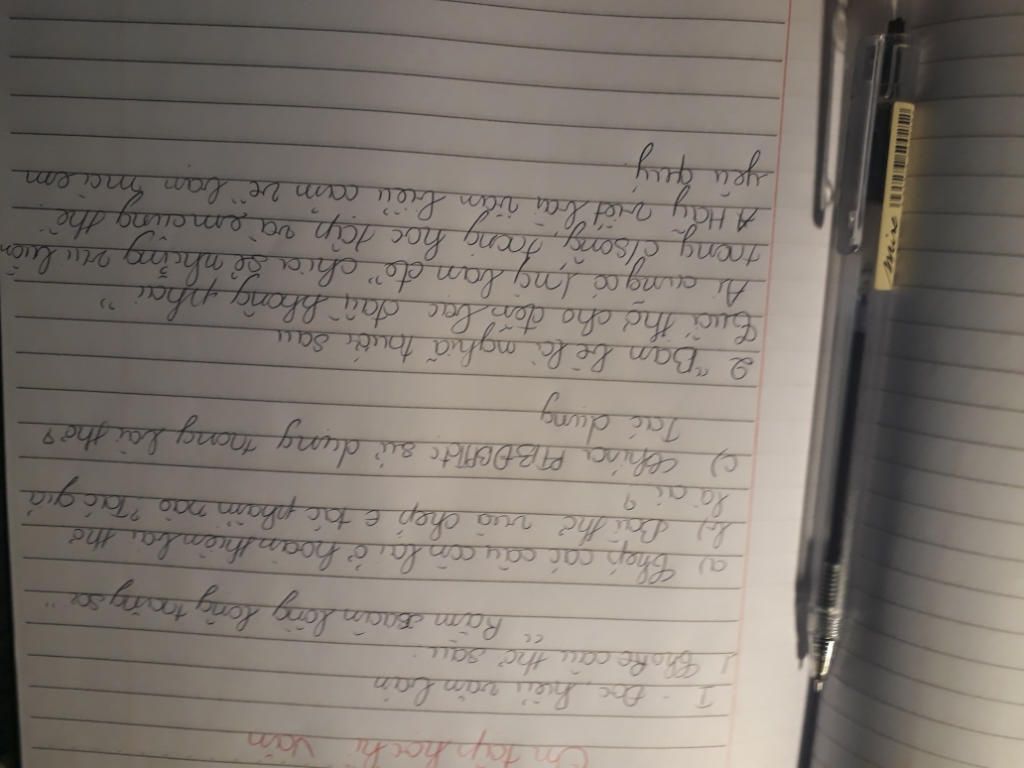 Ôn tập học kì Văn
I - Đọc hiểu văn bản
1. Cho câu thơ sau:
"Rằm xuân lồng lộng trăng soi"
a) Chép các câu còn lại ở hoàn thiện bài thơ
b) Bài thơ vừa chép ∈ tác phẩm nào? Tác giả
là ai?
c) Chỉ ra sử dụng trong bài thơ?
Tác dụng
2 "Bạn bè là nghĩa trước sau
Tuổi thơ cho đến bạc đầu không phai"
Ai cũng có 1 ng bạn để chia sẻ những vui buồn
trong c/sống, trong học tập và em cũng thế
Hãy viết bài văn biểu cảm về bạn mà em
yêu quý
mix